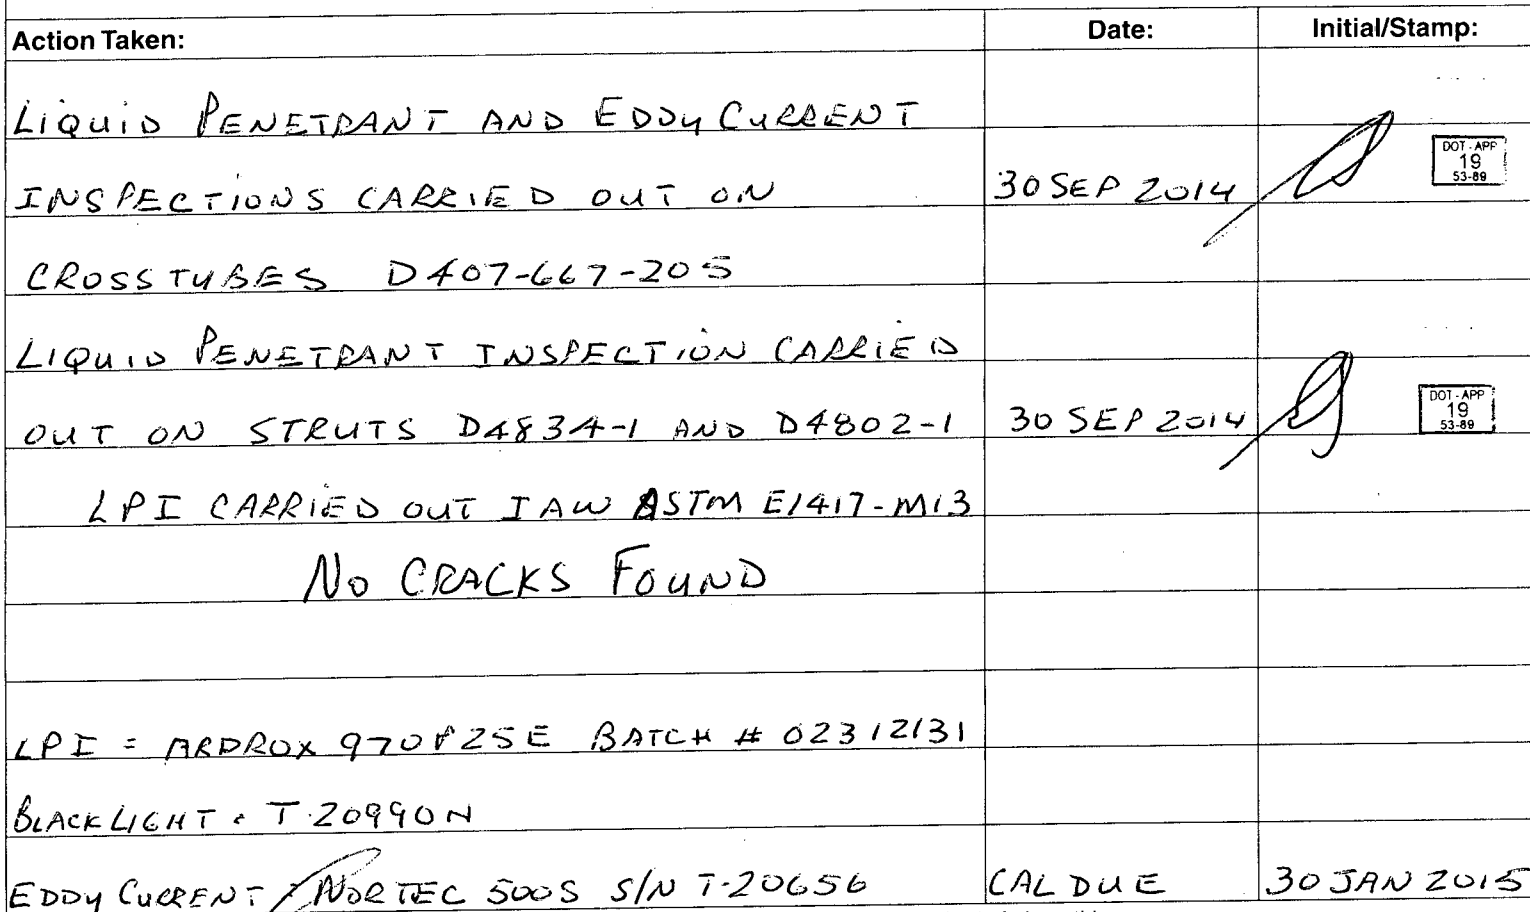 Action Taken: Date: Initial/Stamp:
LIQUID PENETRANT AND EDDY CURRENT
INSPECTIONS CARRIED OUT ON 30 SEP 2014 DOT-APP 19 53-89
CROSSTUBES D407-667-205
LIQUID PENETRANT INSPECTION CARRIED
OUT ON STRUTS D4834-1 AND D4802-1 30 SEP 2014 DOT-APP 19 53-89
LPI CARRIED OUT IAW ASTM E1417-M13
NO CRACKS FOUND
LPI = ARDROX 970P25E BATCH # 02312131
BLACK LIGHT = T-20990N
EDDY CURRENT = NORTEC 500S S/N T-20656 CAL DUE 30 JAN 2015